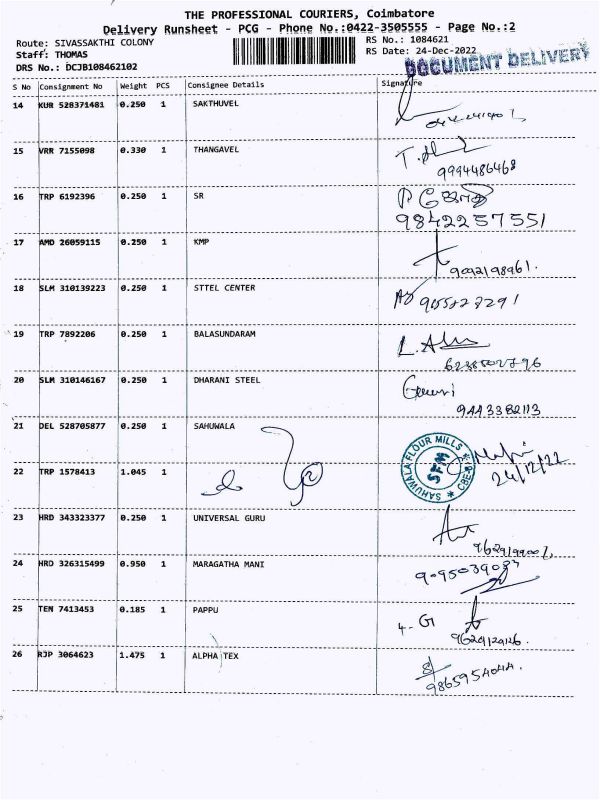 THE PROFESSIONAL COURIERS, Coimbatore
Delivery Runsheet - PCG - Phone No.:0422-3505555 - Page No.:2
Route: SIVASSAKTHI COLONY RS No.: 1084621
Staff: THOMAS RS Date: 24-Dec-2022
DRS No.: DCJB108462102 DOCUMENT DELIVERY
S No Consignment No Weight PCS Consignee Details Signature
14 KUR 528371481 0.250 1 SAKTHUVEL
15 VRR 7155098 0.330 1 THANGAVEL
9994486468
16 TRP 6192396 0.250 1 SR
9842257551
17 AMD 26059115 0.250 1 KMP
9092198961.
18 SLM 310139223 0.250 1 STTEL CENTER
19 TRP 7892206 0.250 1 BALASUNDARAM
20 SLM 310146167 0.250 1 DHARANI STEEL
9443382113
21 DEL 528705877 0.250 1 SAHUWALA
SAHUWALA FLOUR MILLS
SFM
24/12/22
22 TRP 1578413 1.045 1
23 HRD 343323377 0.250 1 UNIVERSAL GURU
24 HRD 326315499 0.950 1 MARAGATHA MANI
9095039083
25 TEN 7413453 0.185 1 PAPPU
26 RJP 3064623 1.475 1 ALPHA TEX
9865954044.